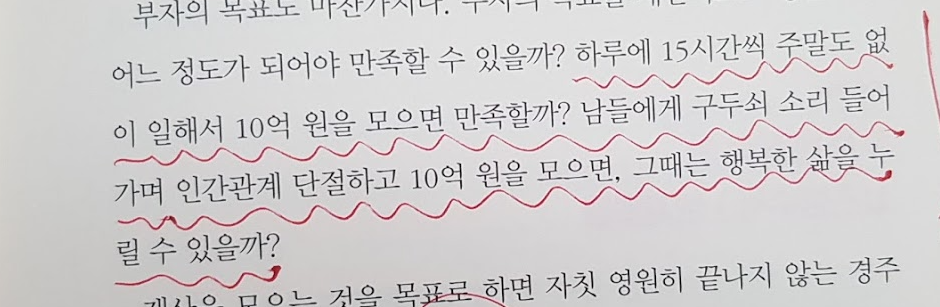 부자의 목표도 마찬가지다. 부자의 목표를
어느 정도가 되어야 만족할 수 있을까? 하루에 15시간씩 주말도 없
이 일해서 10억 원을 모으면 만족할까? 남들에게 구두쇠 소리 들어
가며 인간관계 단절하고 10억 원을 모으면, 그때는 행복한 삶을 누
릴 수 있을까?
재산을 모으는 것을 목표로 하면 자칫 영원히 끝나지 않는 경주